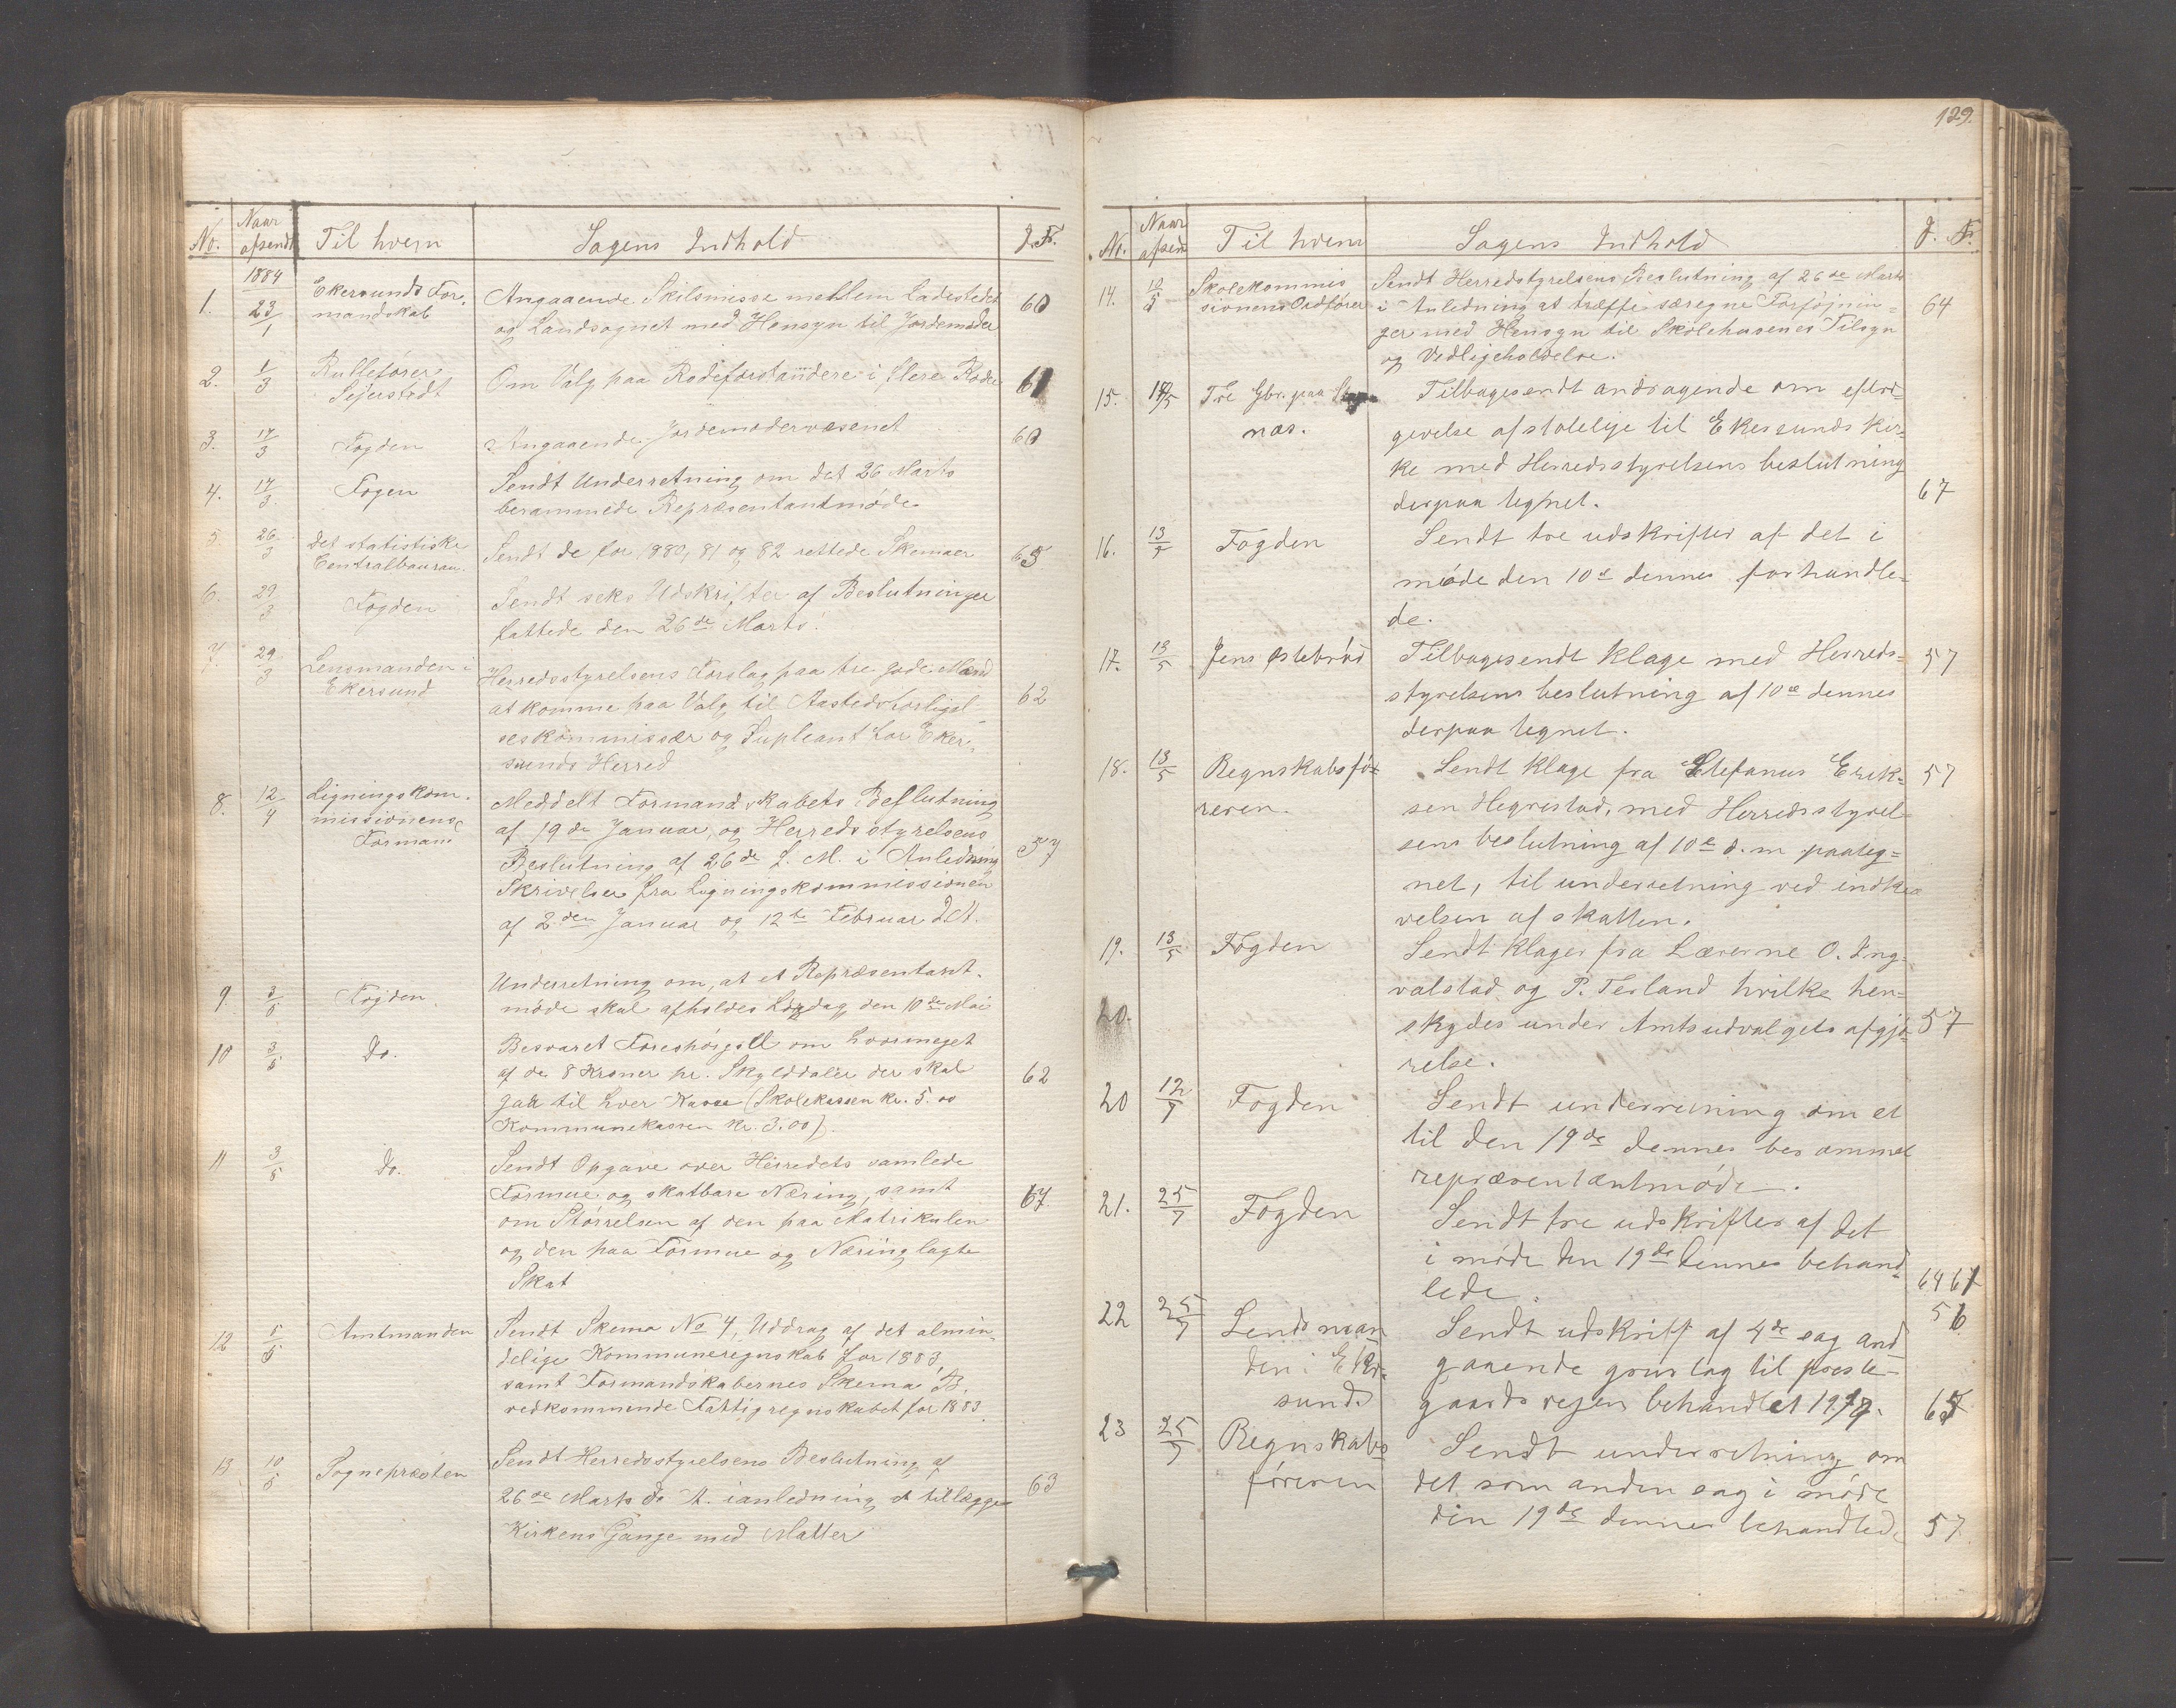 No. Naar afsendt Til hvem Sagens Indhold J. Nr.
1884
1. 23/1 Ekersunds For- Angaaende Skilsmisse mellem Ladestedet 60
mandskab og Landsognet med Hensyn til Jordemoder
2. 1/3 Rullefører Om Valg paa Rodeforstanndere i flere Roder 61
Sejersted
3. 17/3 Fogden Angaaende Jordemodervæsenet 60
4. 17/3 Fogen Sendt Underretning om det 26 Marts
berammede Repræsentantmøde
5. 26/3 Det statistiske Sendt de for 1880, 81 og 82 rettede Skemaer 65
Centralbaurau.
6. 29/3 Fogden Sendt seks Udskrifter af Beslutninger
fattede den 26de Marts.
7. 29/3 Lensmanden i Herredsstyrelsens Forslag paa tre gode Mænd 62
Ekersund at komme paa Valg til Aastedsforligel-
seskommissær og Supleant for Eker-
sunds Herred
8. 12/4 Ligningskom- Meddelt Formandskabets Beslutning
missionens af 19de Januar, og Herredsstyrelsens 57
Formand Beslutning af 26de f. M. i Anledning
Skrivelser fra Ligningskommissionen
af 2den Januar og 12te Februar d.A.
9. 3/5 Fogden. Underretning om, at et Repræsentant-
møde skal afholdes Lørdag den 10de Mai
10 3/5 Do. Besvaret Forespørgsel om hvormeget
af de 8 Kroner pr. Skylddaler der skal 62
gaa til hver Kasse (Skolekassen kr. 5.00
Kommunekassen kr. 3.00).
11 3/5 Do. Sendt Opgave over Herredets samlede
Formue og skatbare Næring, samt 67
om Størrelsen af den paa Matrikulen
og den paa Formue og Næring lagte
Skat
12 5/5 Amtmanden Sendt Skema No 4, Uddrag af det almin-
delige Kommuneregnskab for 1883,
samt Formandskabernes Skema B.
vedkommende Fattigregnskabet for 1883.
13 10/5 Sognepresten Sendt Herredsstyrelsens Beslutning af
26de Marts d. A. i anledning at tillægge 63
Kirkens Gange med Matter
129.
No. Naar afsendt Til hvem Sagens Indhold J. Nr.
14. 10/5 Skolekommis Sendt Herredstyrelsens Beslutning af 26de Marts
sionens Ordfører i Anledning at træffe særegne Forføjnin- 64
ger med Hensyn til Skolehusenes Tilsyn
og Vedligeholdelse.
15. Tre Gbr. paa Tilbagesendt andragende om efter-
næs. givelse af stoleleje til Ekersunds Kir-
ke med Herredsstyrelsens beslutning
derpaa tegnet. 67
16. 13/5 Fogden Sendt tre udskrifter af det i
møde den 10de dennes forhandle-
de.
17. 13/5 Jens Østebrød Tilbagesendt klage med Herreds- 57
styrelsens beslutning af 10de dennes
derpaa tegnet.
18. 13/5 Regnskabsfø- Sendt klage fra Stefanus Erik- 57
reren. sen Hegrestad, med Herredsstyrel-
sens beslutning af 10de d. m. paateg-
net, til underretning ved indkræ
velsen af skatten.
19. 13/5 Fogden Sendt klager fra Lærerne O. Ing-
valstad og P. Tesland hvilke hen-
20. skydes under Amtsudvalgets afgjø- 57
relse.
20 12/7 Fogden Sendt underretning om et
til den 19de dennes berammet
repræsentantmøde.
21. 25/7 Fogden Sendt tre udskrifter af det
i møde den 19de dennes behand
lede. 64 67
22 25/7 Lensman Sendt udskrift af 4de sag and 56
den i Eker- gaaende gruslag til præste-
sund gaardsvejen behandlet 19/7. 65
23 25/7 Regnskabs Sendt underretning om
føreren det som anden sag i møde
den 19de dennes behandlede 57